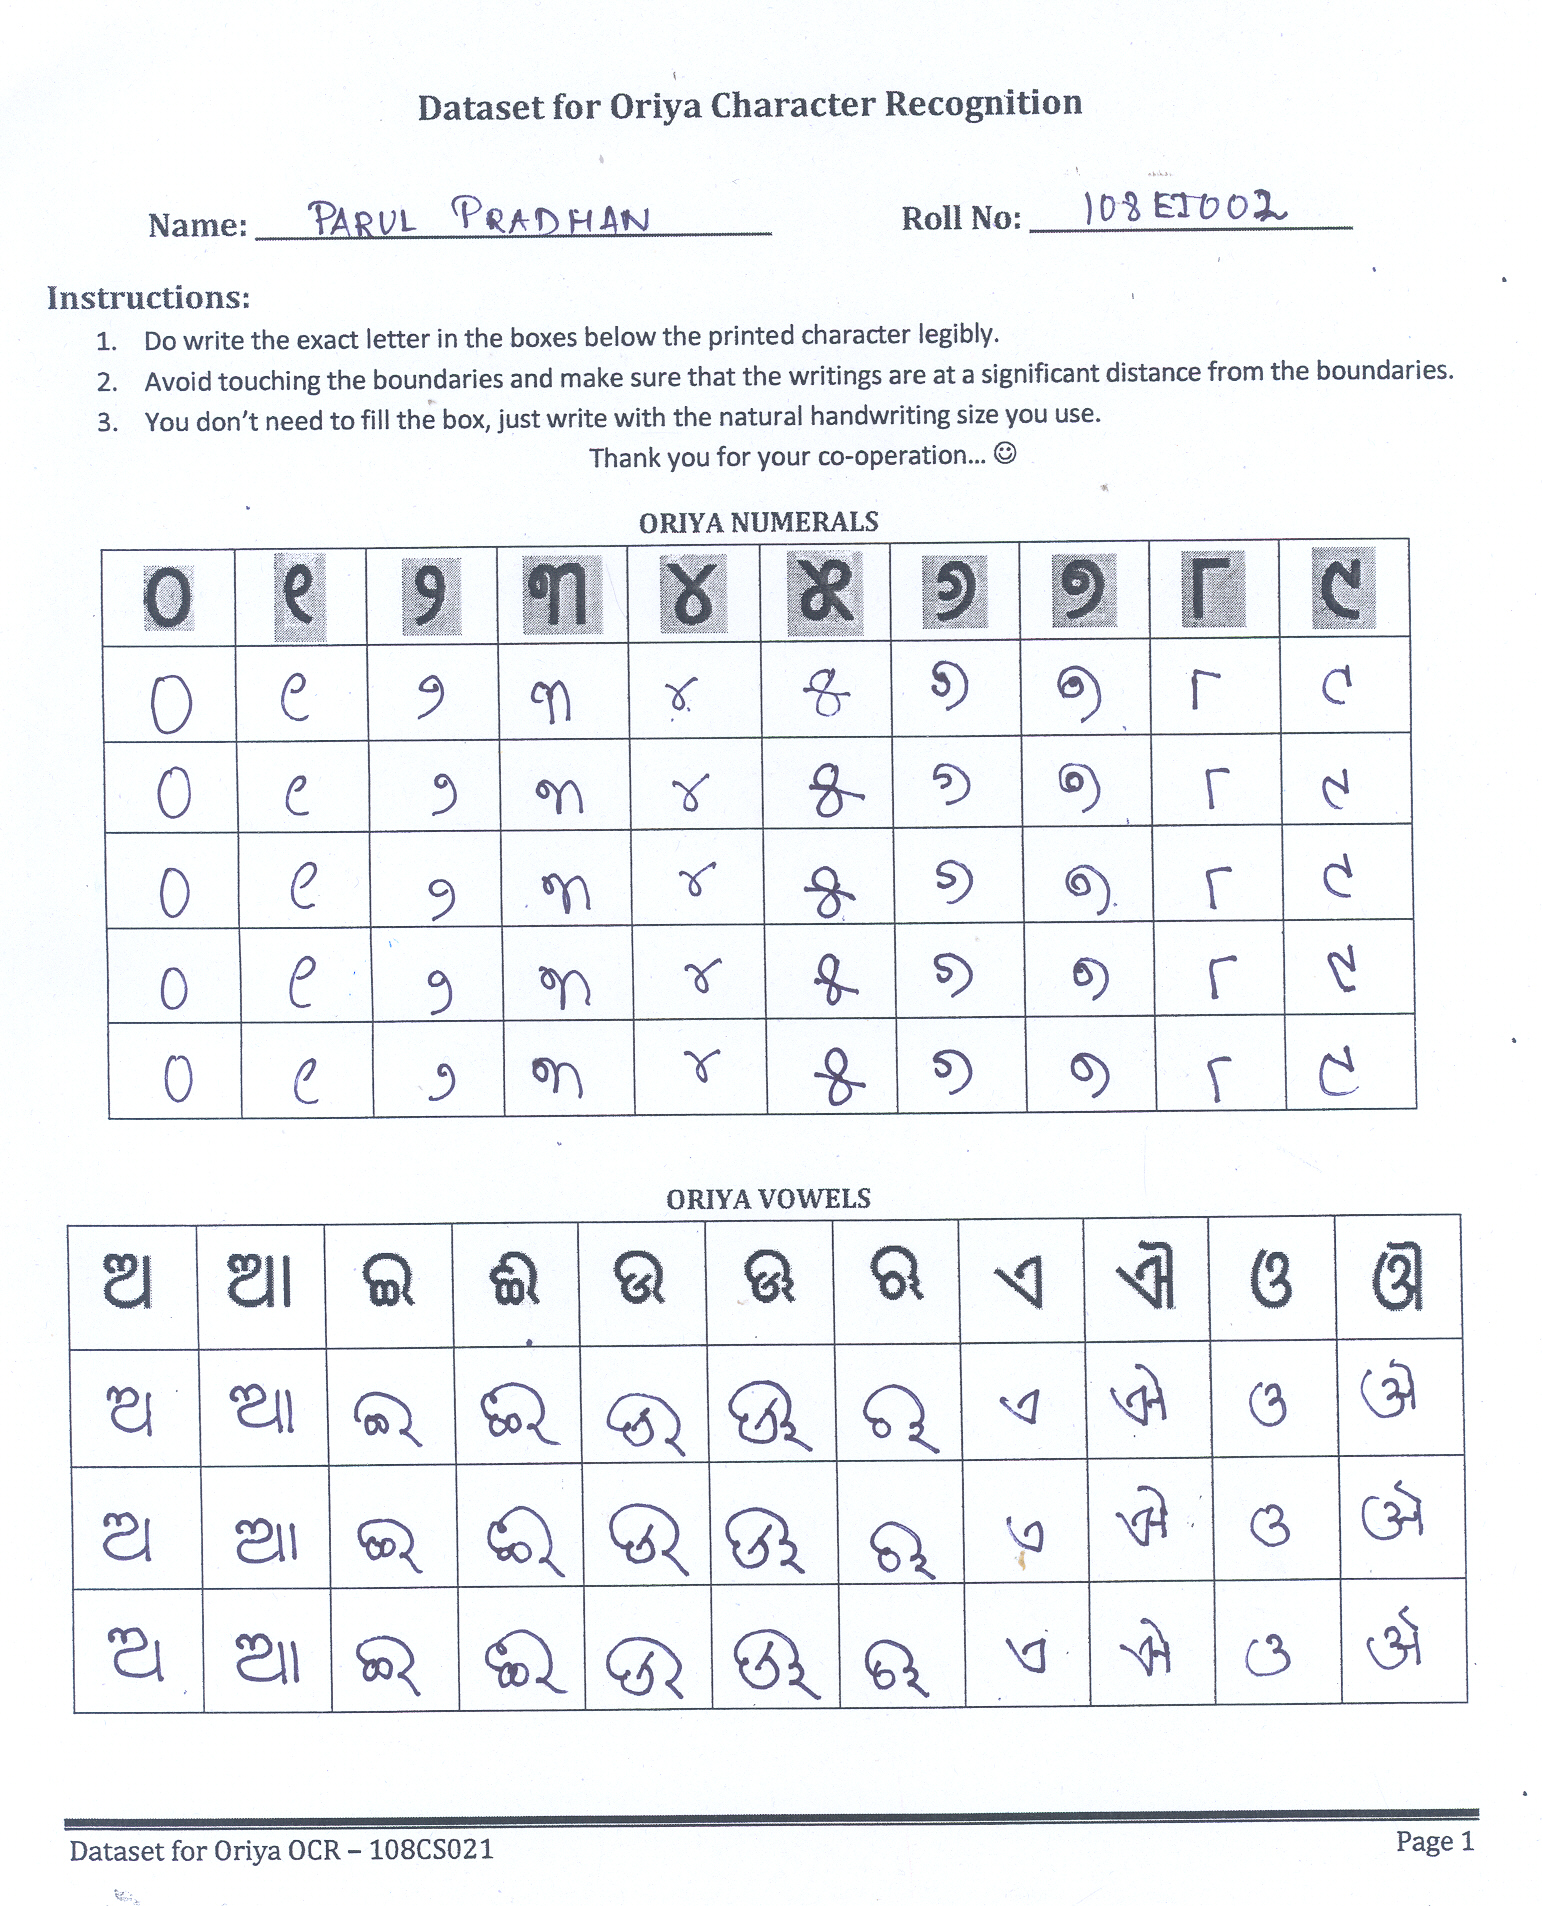 Dataset for Oriya Character Recognition
Name: PARUL PRADHAN Roll No: 108EI002
Instructions:
1. Do write the exact letter in the boxes below the printed character legibly.
2. Avoid touching the boundaries and make sure that the writings are at a significant distance from the boundaries.
3. You don't need to fill the box, just write with the natural handwriting size you use.
Thank you for your co-operation... ☺
ORIYA NUMERALS
୦ ୧ ୨ ୩ ୪ ୫ ୬ ୭ ୮ ୯
୦ ୧ ୨ ୩ ୪ ୫ ୬ ୭ ୮ ୯
୦ ୧ ୨ ୩ ୪ ୫ ୬ ୭ ୮ ୯
୦ ୧ ୨ ୩ ୪ ୫ ୬ ୭ ୮ ୯
୦ ୧ ୨ ୩ ୪ ୫ ୬ ୭ ୮ ୯
୦ ୧ ୨ ୩ ୪ ୫ ୬ ୭ ୮ ୯
ORIYA VOWELS
ଅ ଆ ଇ ଈ ଉ ଊ ଋ ଏ ଐ ଓ ଔ
ଅ ଆ ଇ ଈ ଉ ଊ ଋ ଏ ଐ ଓ ଔ
ଅ ଆ ଇ ଈ ଉ ଊ ଋ ଏ ଐ ଓ ଔ
ଅ ଆ ଇ ଈ ଉ ଊ ଋ ଏ ଐ ଓ ଔ
Dataset for Oriya OCR – 108CS021 Page 1